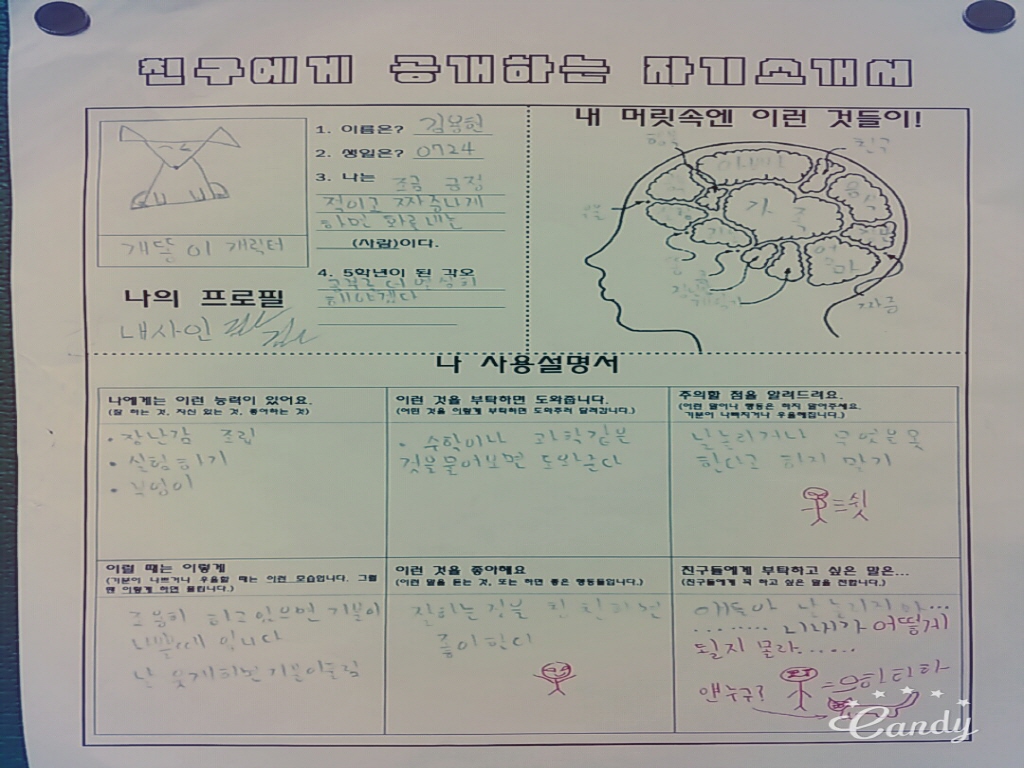 친구에게 공개하는 자기소개서
1. 이름은? 김용현
2. 생일은? 0724
3. 나는 조금 긍정
적이고 짜증나게
하면 화를내는
(사람)이다.
4. 5학년이 된 각오
해야겠다
개똥이 캐릭터
나의 프로필
내사인
내 머릿속엔 이런 것들이!
친구
가족
엄마
짜증
나 사용설명서
나에게는 이런 능력이 있어요.
(잘 하는 것, 자신 있는 것, 좋아하는 것)
• 장난감 조립
• 실험하기
이런 것을 부탁하면 도와줍니다.
(어떤 것을 이렇게 부탁하면 도와주러 달려갑니다.)
• 수학이나 과학같은
것을물어보면 도와준다
주의할 점을 알려드려요.
(이런 말이나 행동은 하지 말아주세요.
기분이 나빠지거나 우울해집니다.)
날놀리거나 무엇을못
한다고 하지 말기
=쉿
이럴 때는 이렇게
(기분이 나쁘거나 우울할 때는 이런 모습입니다. 그럴
땐 이렇게 하면 풀립니다.)
조용히 하고있으면 기분이
나쁠때 입니다
날 웃게하면 기분이풀림
이런 것을 좋아해요
(이런 말을 듣는 것, 또는 하면 좋은 행동들입니다.)
잘하는점을 칭찬하면
좋아한다
친구들에게 부탁하고 싶은 말은...
(친구들에게 꼭 하고 싶은 말을 전합니다.)
얘들아 날놀리지마...
......... 내가 어떻게
될지 몰라......
앤누구?
=으하하하
Candy